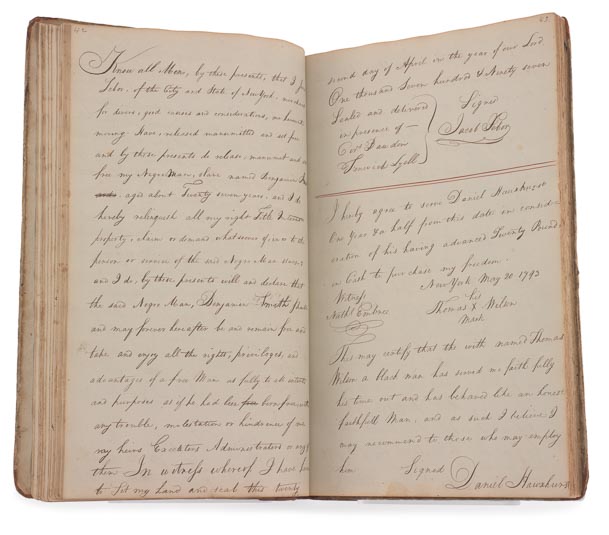 42
Know all Men, by these presents, that I
Tobin, of the City and State of New York, merchant
for divers, good causes and considerations, me hereunto
moving Have, released manumitted and set free
and by these presents do release, manumit and set
free my Negro Man, slave named Benjamin
aged about Twenty seven years, and I do
hereby relinquish all my right Title Interest
property, claim or demand whatsoever of in or to the
person or service of the said Negro Man
and I do, by these presents will and declare that
the said Negro Man, Benjamin Smith
and may forever hereafter be and remain free and
take and enjoy all the rights, privileges, and
advantages of a free Man as fully to all intents
and purposes as if he had been free born
any trouble, molestation or hindrance of me
my heirs, Executors Administrators or any
them In witness whereof I have
to set my hand and seal this twenty
43
second day of April in the year of our Lord
One thousand Seven hundred & Ninety seven
Sealed and delivered
in presence of
Fenwick Lyell
Signed
Jacob Tobin
I hereby agree to serve Daniel Hawxhurst
One Year & a half from this date in consid-
eration of his having advanced Twenty Pounds
in Cash to purchase my freedom.
New York May 20 1793
Witness
Nathl Embree
his
Thomas X Wilen
Mark
This may certify that the with named Thomas
Wilen a black man has served me faith fully
his time out and has behaved like an honest
faithfull Man, and as such I believe I
may recommend to those who may employ
him
Signed
Daniel Hawxhurst